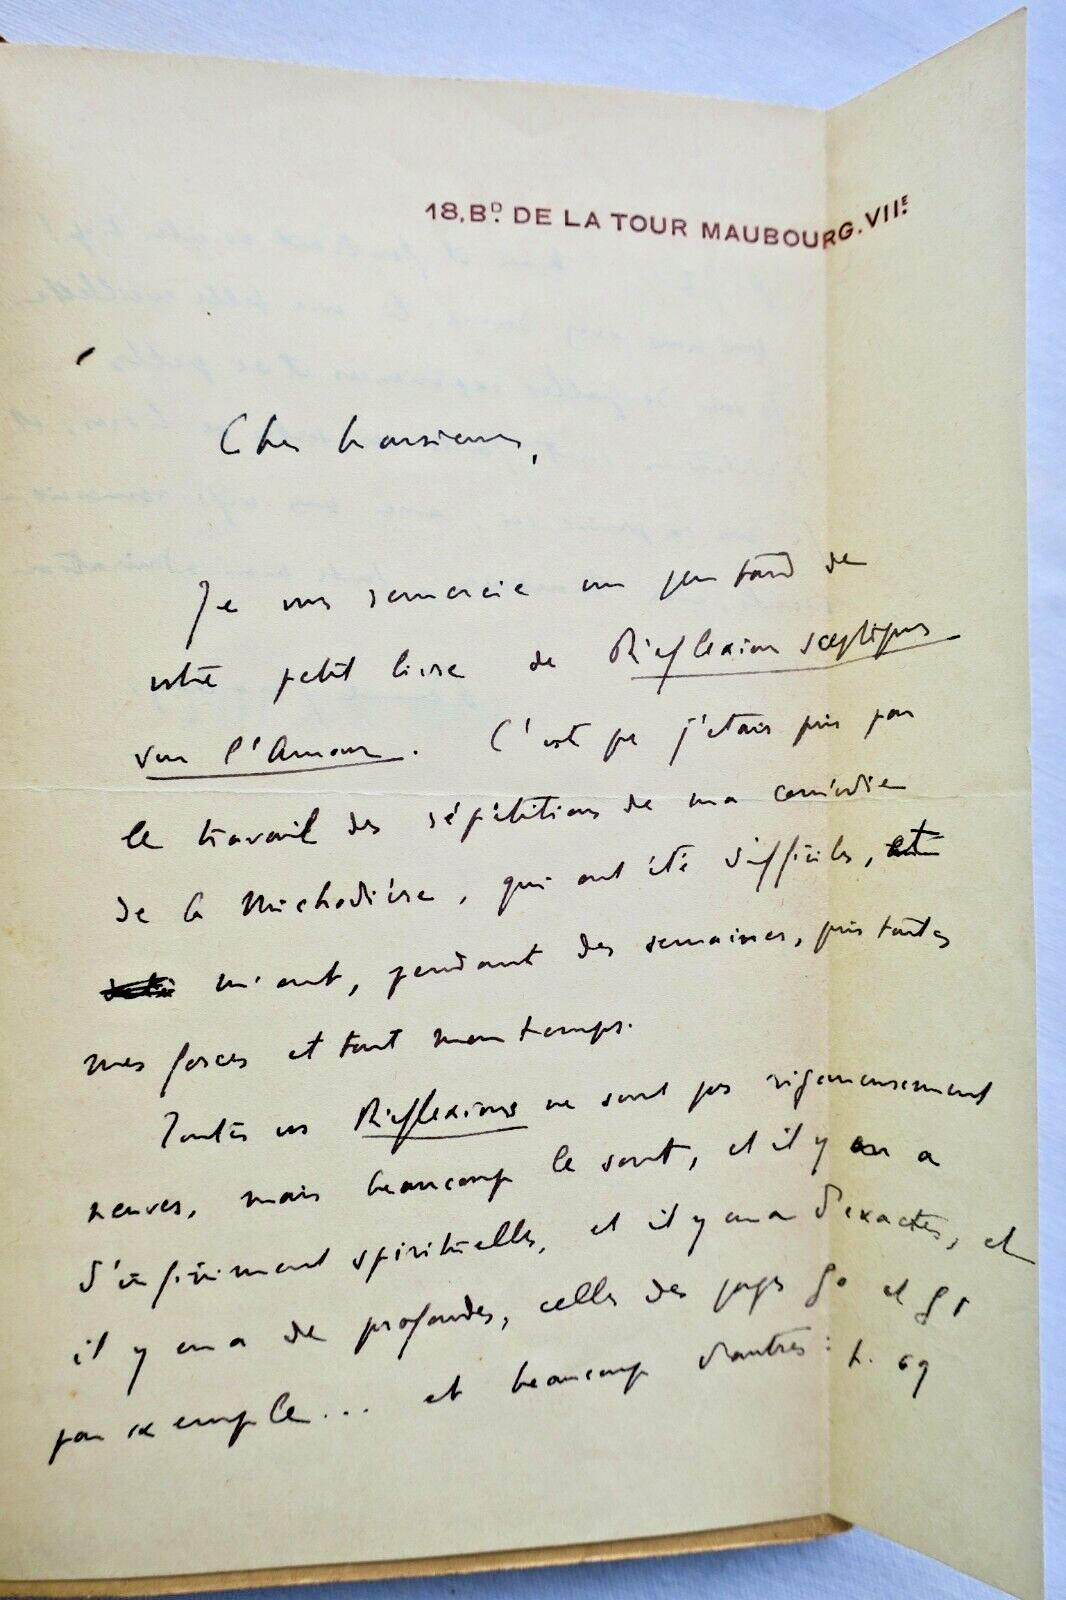 18, Bᴅ. DE LA TOUR MAUBOURG. VIIᴇ.
Cher Monsieur,
Je vous remercie un peu tard de
votre petit livre de Réflexions sceptiques
sur l'Amour. C'est que j'étais pris par
le travail des répétitions de ma comédie
de la Michodière, qui ont été difficiles, et
m'ont, pendant des semaines, pris toutes
mes forces et tout mon temps.
Toutes ces Réflexions ne sont pas rigoureusement
neuves, mais beaucoup le sont, et il y en a
d'infiniment spirituelles, et il y en a d'exactes, et
il y en a de profondes, celles des pages 90 et 91
par exemple... et beaucoup d'autres : p. 69